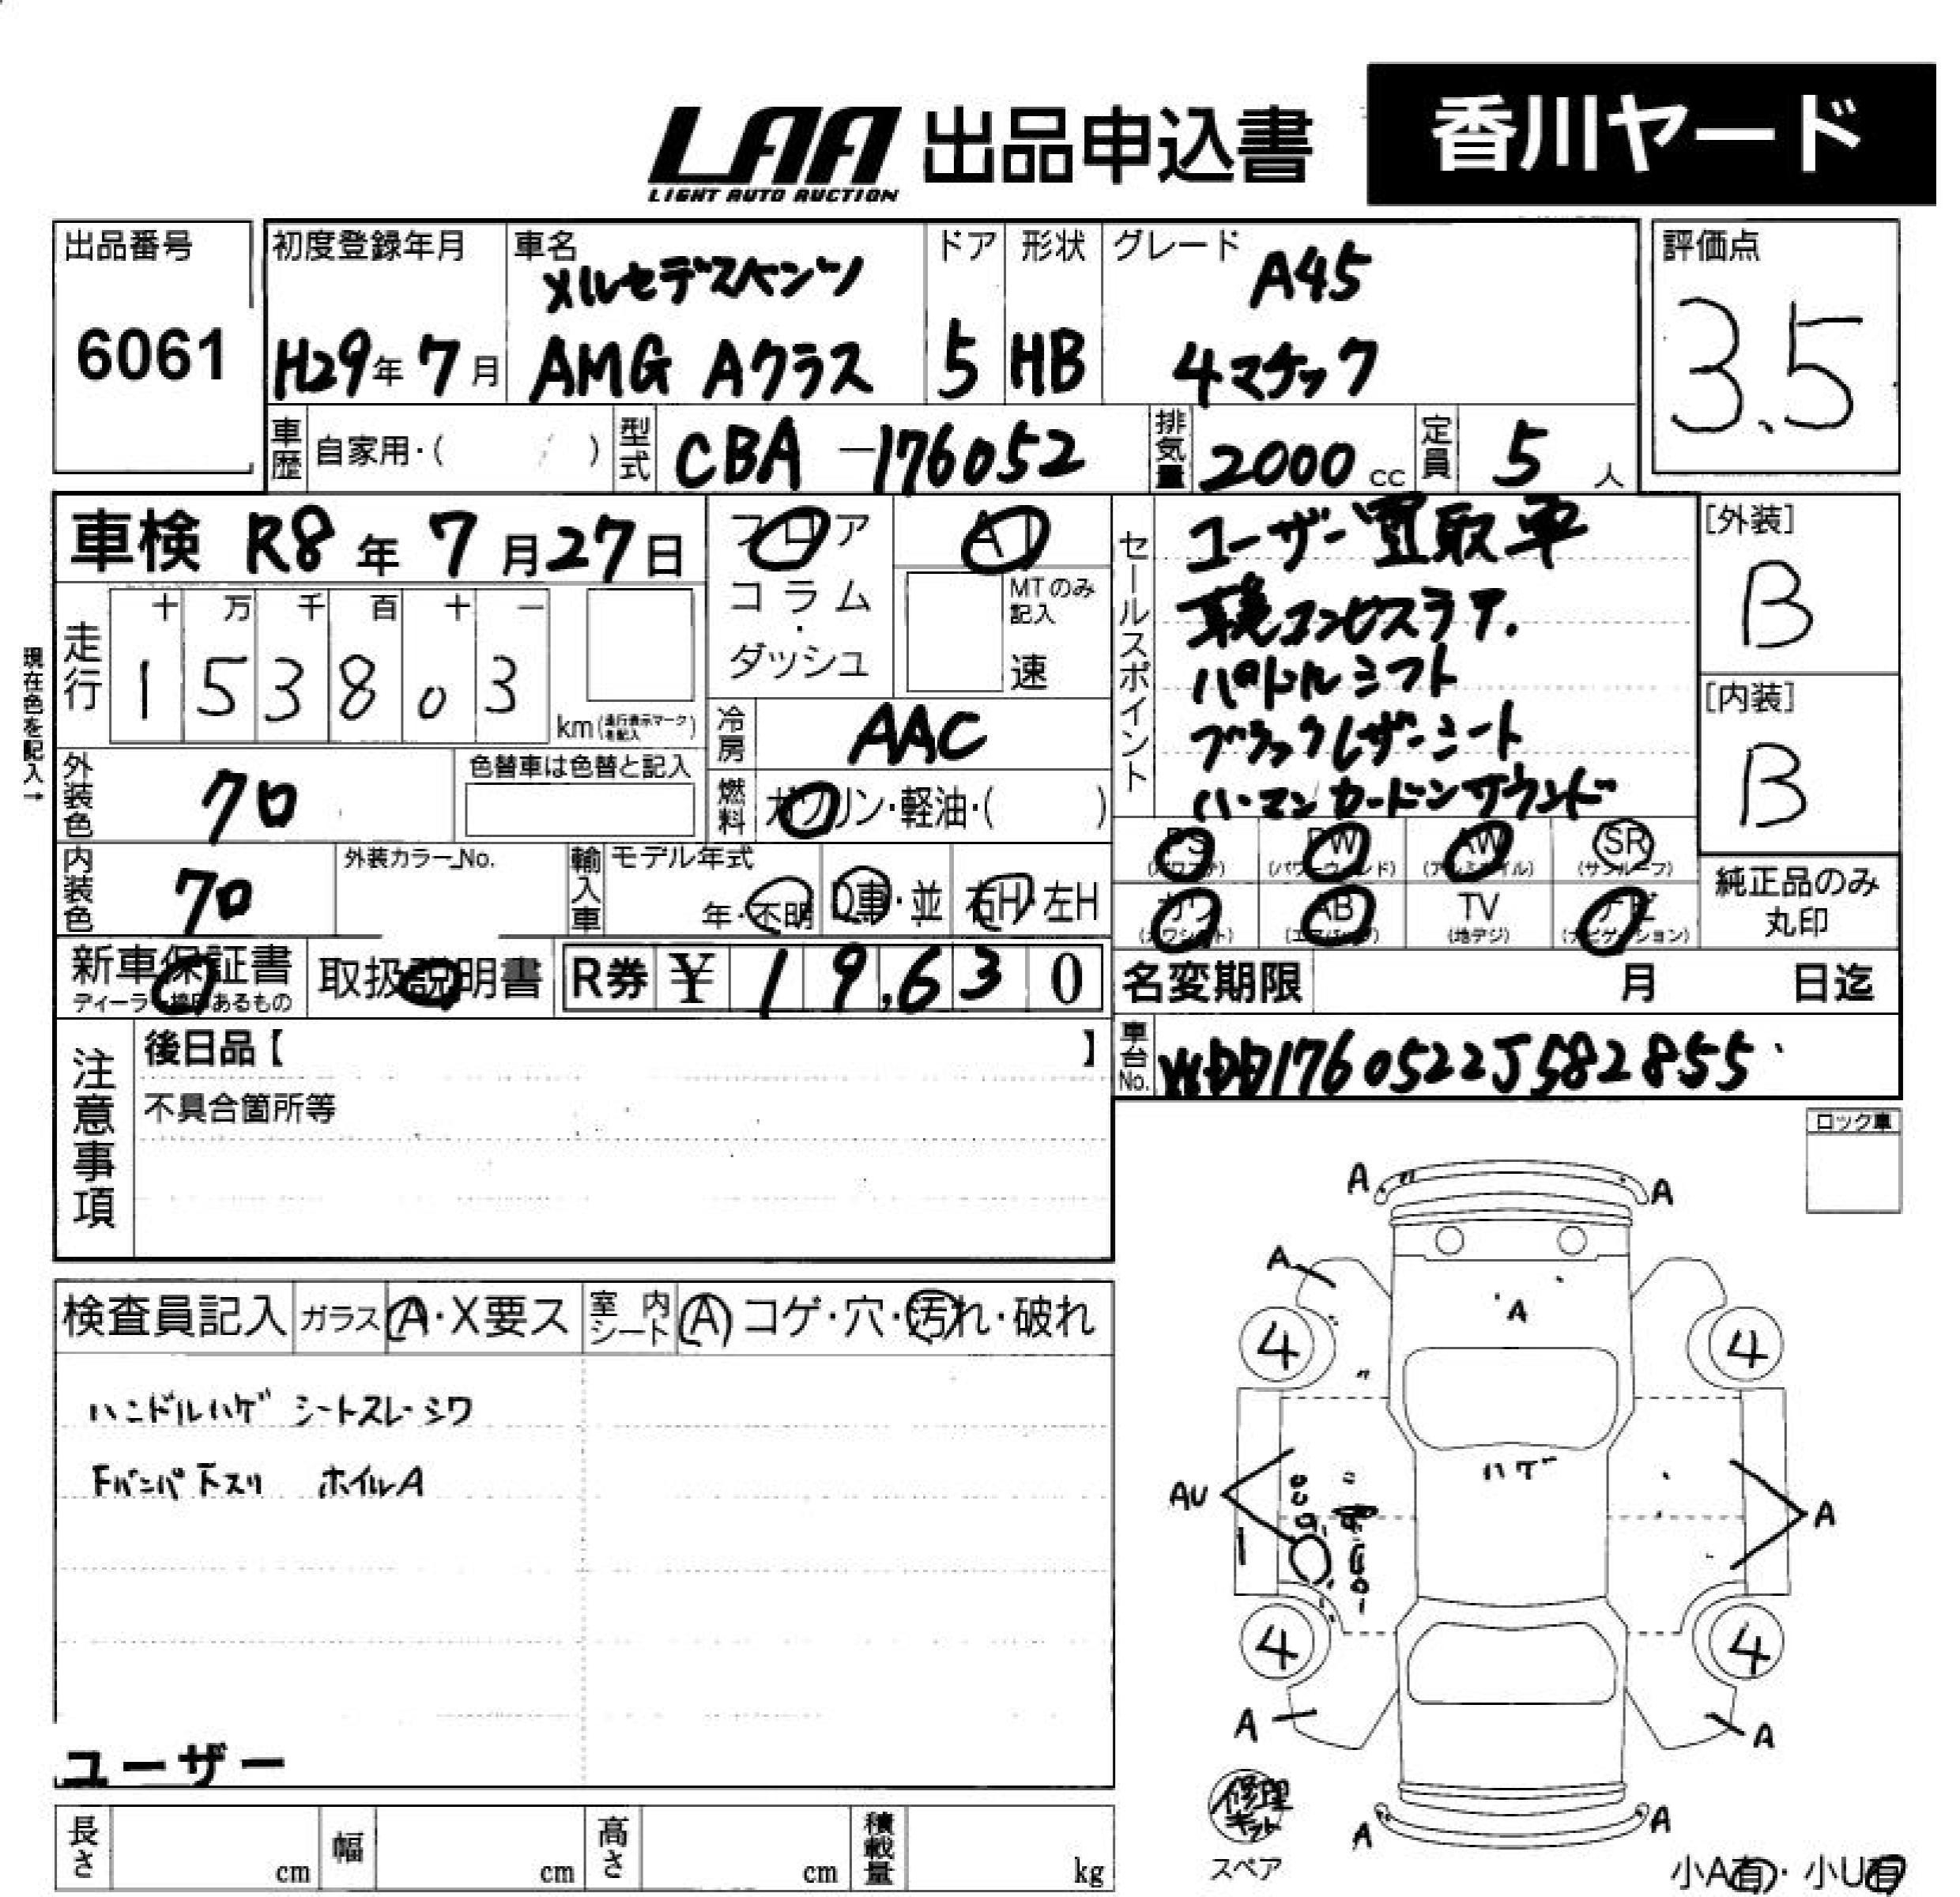 LAA
LIGHT AUTO AUCTION
出品申込書
香川ヤード
出品番号
6061
初度登録年月
H29年7月
車名
メルセデスベンツ
AMG Aクラス
ドア
5
形状
HB
グレード
A45
4マチック
評価点
3.5
車歴
自家用・( )
型式
CBA-176052
排気量
2000cc
定員
5人
車検 R8年7月27日
フロア
コラム
・
ダッシュ
AT
MTのみ
記入
速
セールスポイント
ユーザー買取車
パドルシフト
ブラックレザーシート
ハーマンカードンサウンド
[外装]
B
[内装]
B
現在色を記入→
走行
十 万 千 百 十 一
1 5 3 8 0 3
km(走行表示マークを記入)
冷房
AAC
外装色
70
色替車は色替と記入
燃料
ガソリン・軽油・( )
内装色
70
外装カラーNo.
輸入車
モデル年式
年・不明
D車・並
右H・左H
PS
(パワステ)
PW
(パワーウィンド)
AW
(アルミホイル)
SR
(サンルーフ)
カワ
(カワシート)
AB
(エアバッグ)
TV
(地デジ)
ナビ
(ナビゲーション)
純正品のみ
丸印
新車保証書
ディーラー捺印あるもの
取扱説明書
R券 ¥ 19,630
名変期限 月 日迄
車台No.
WDD1760522J582855
注意事項
後日品【 】
不具合箇所等
ロック車
検査員記入
ガラス
A・X要ス
室内シート
A コゲ・穴・汚れ・破れ
ハンドルハゲ シートスレ・シワ
Fバンパ下スリ ホイルA
ユーザー
長さ cm
幅 cm
高さ cm
積載量 kg
A
A
A
A
4
4
ハゲ
AU
A
4
4
A
A
修理キット
スペア
A
A
小A有・小U有